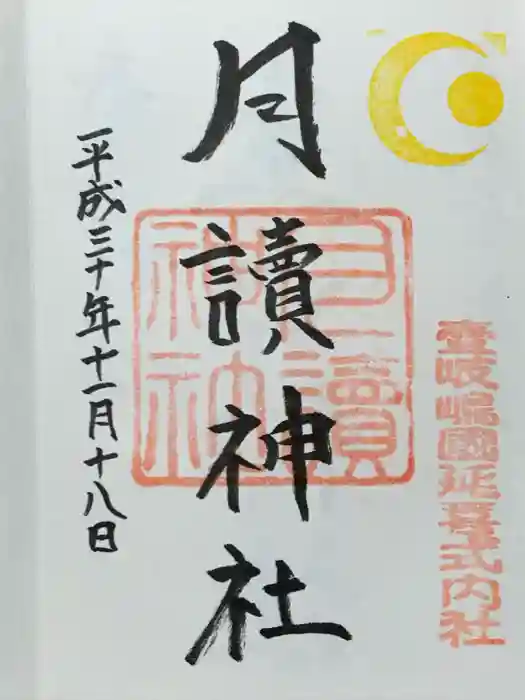 壹岐嶋國延喜式内社
月讀神社
月讀
神社
平成三十年十一月十八日